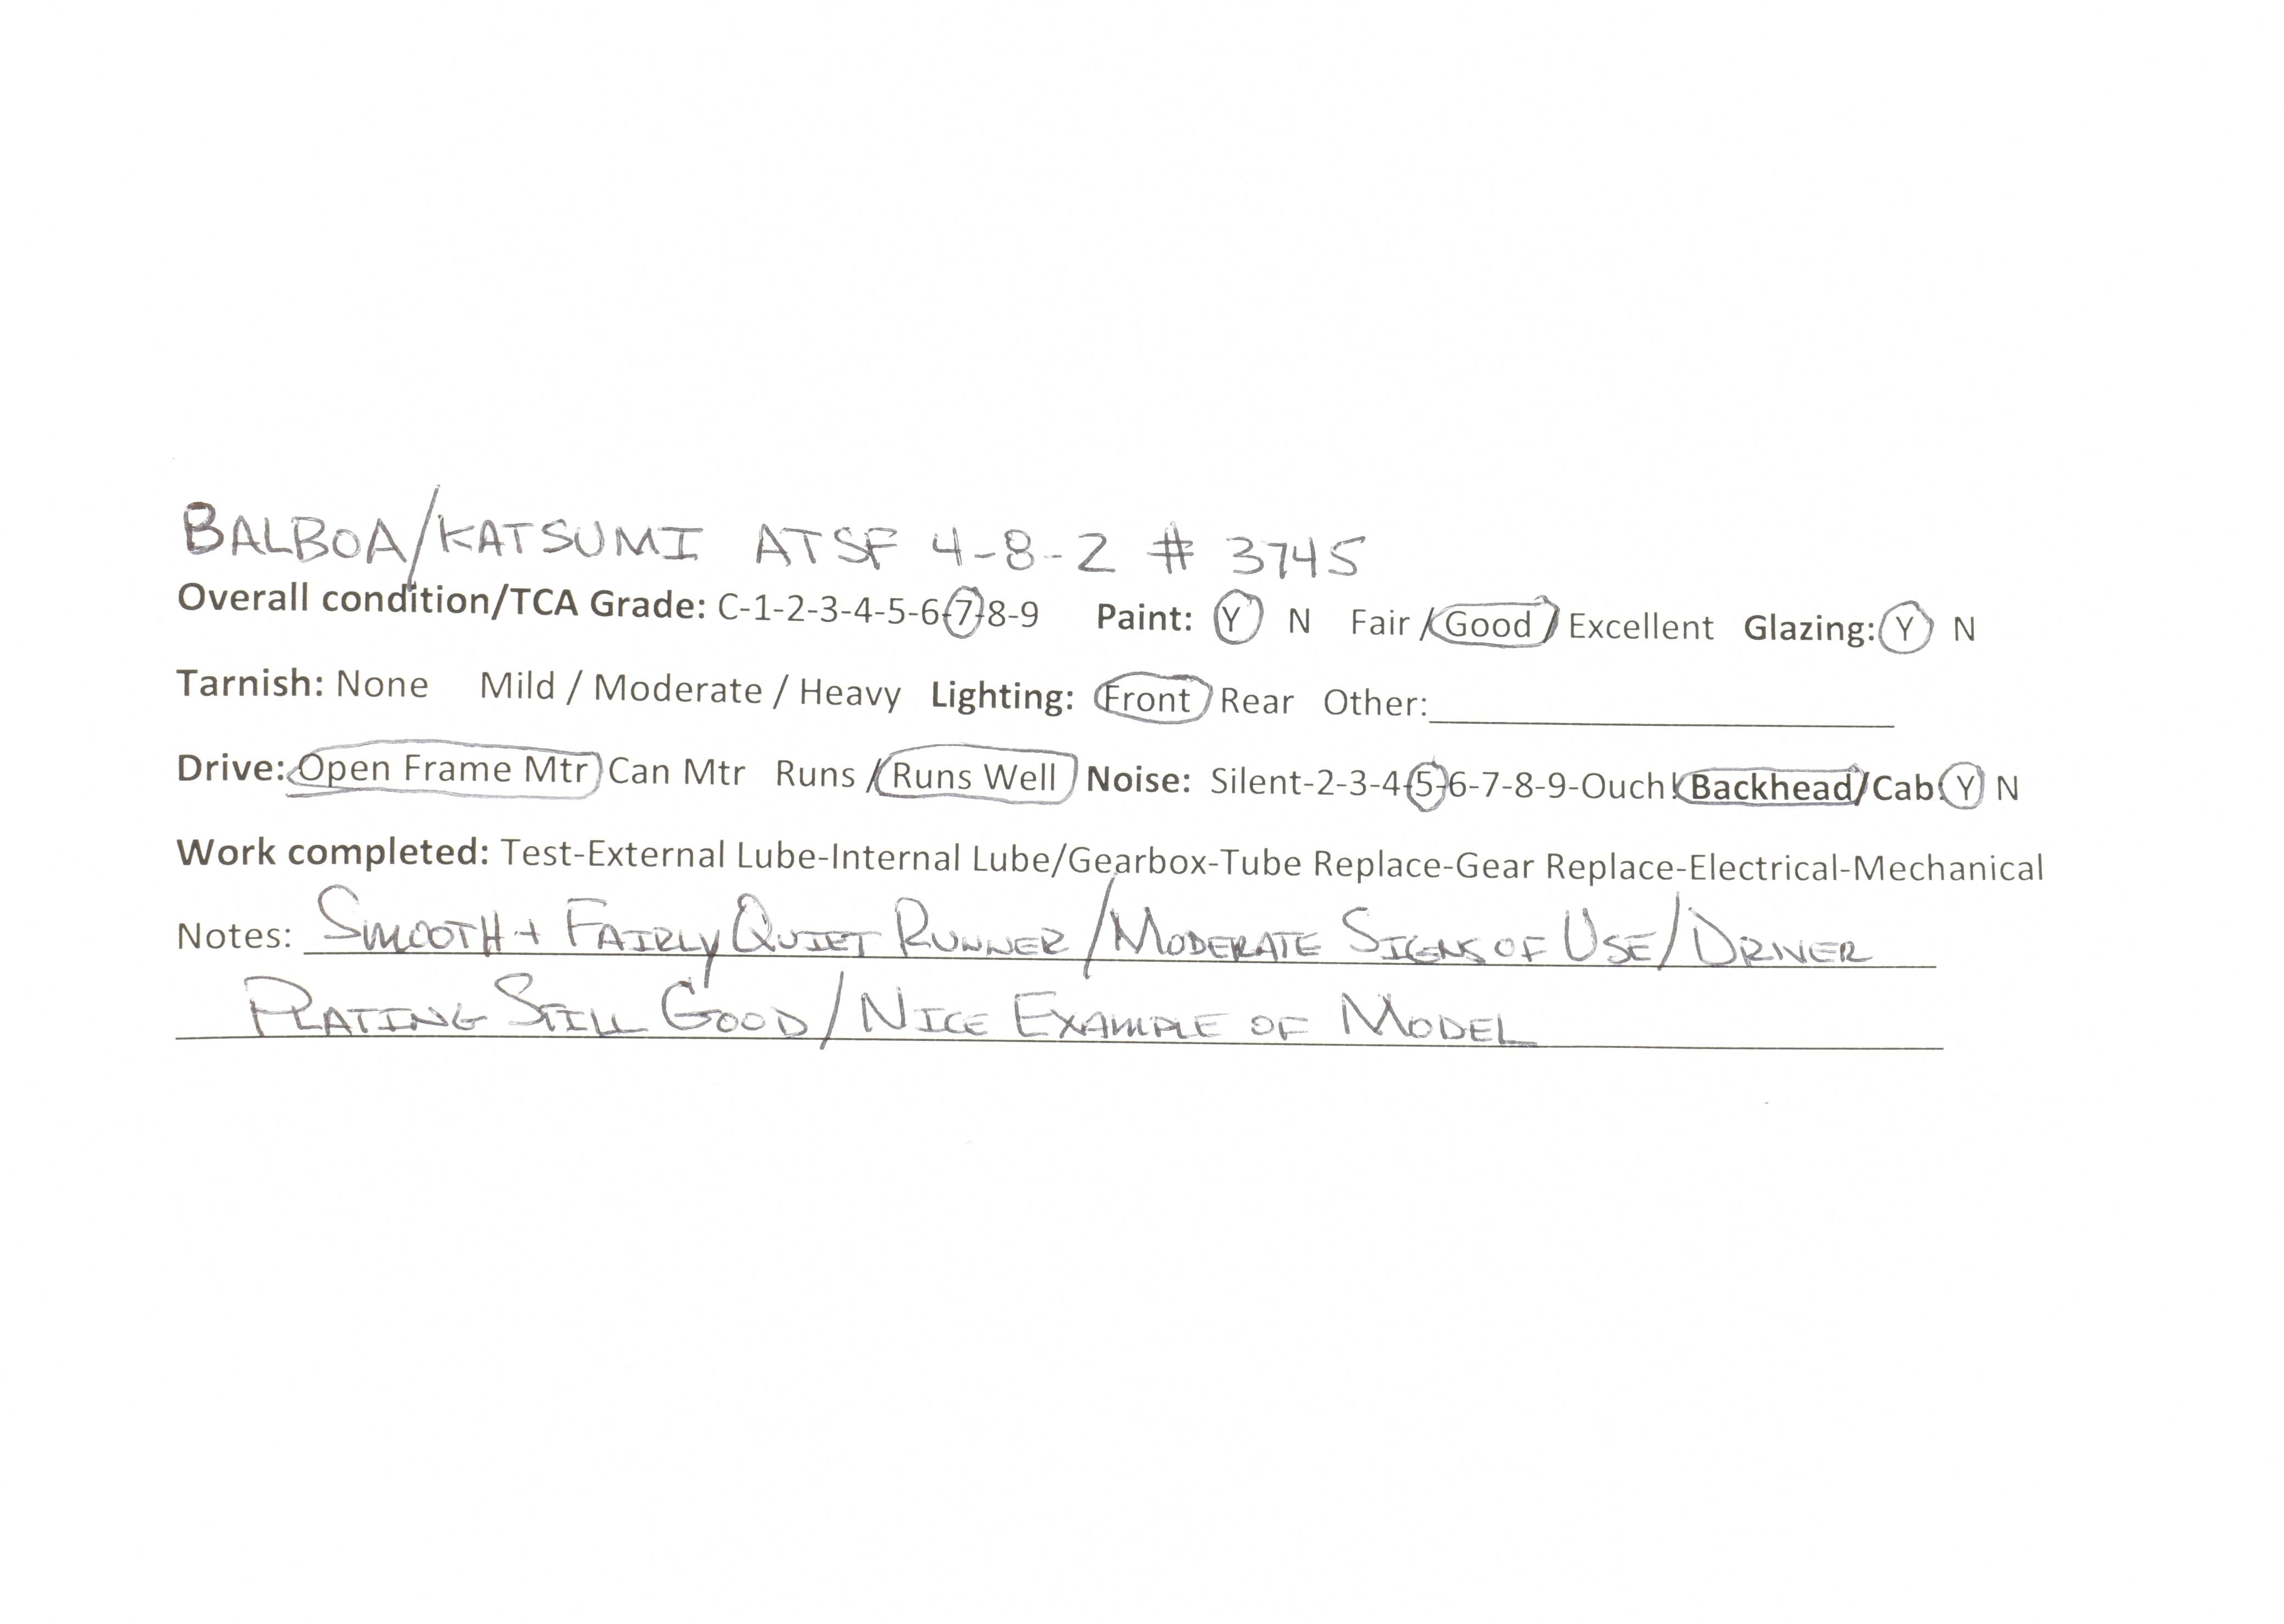 BALBOA/KATSUMI ATSF 4-8-2 # 3745
Overall condition/TCA Grade: C-1-2-3-4-5-6-7-8-9 Paint: Y N Fair / Good / Excellent Glazing: Y N
Tarnish: None Mild / Moderate / Heavy Lighting: Front Rear Other:
Drive: Open Frame Mtr Can Mtr Runs / Runs Well Noise: Silent-2-3-4-5-6-7-8-9-Ouch! Backhead/Cab: Y N
Work completed: Test-External Lube-Internal Lube/Gearbox-Tube Replace-Gear Replace-Electrical-Mechanical
Notes: SMOOTH + FAIRLY QUIET RUNNER/MODERATE SIGNS OF USE/DRIVER
PLATING STILL GOOD/NICE EXAMPLE OF MODEL